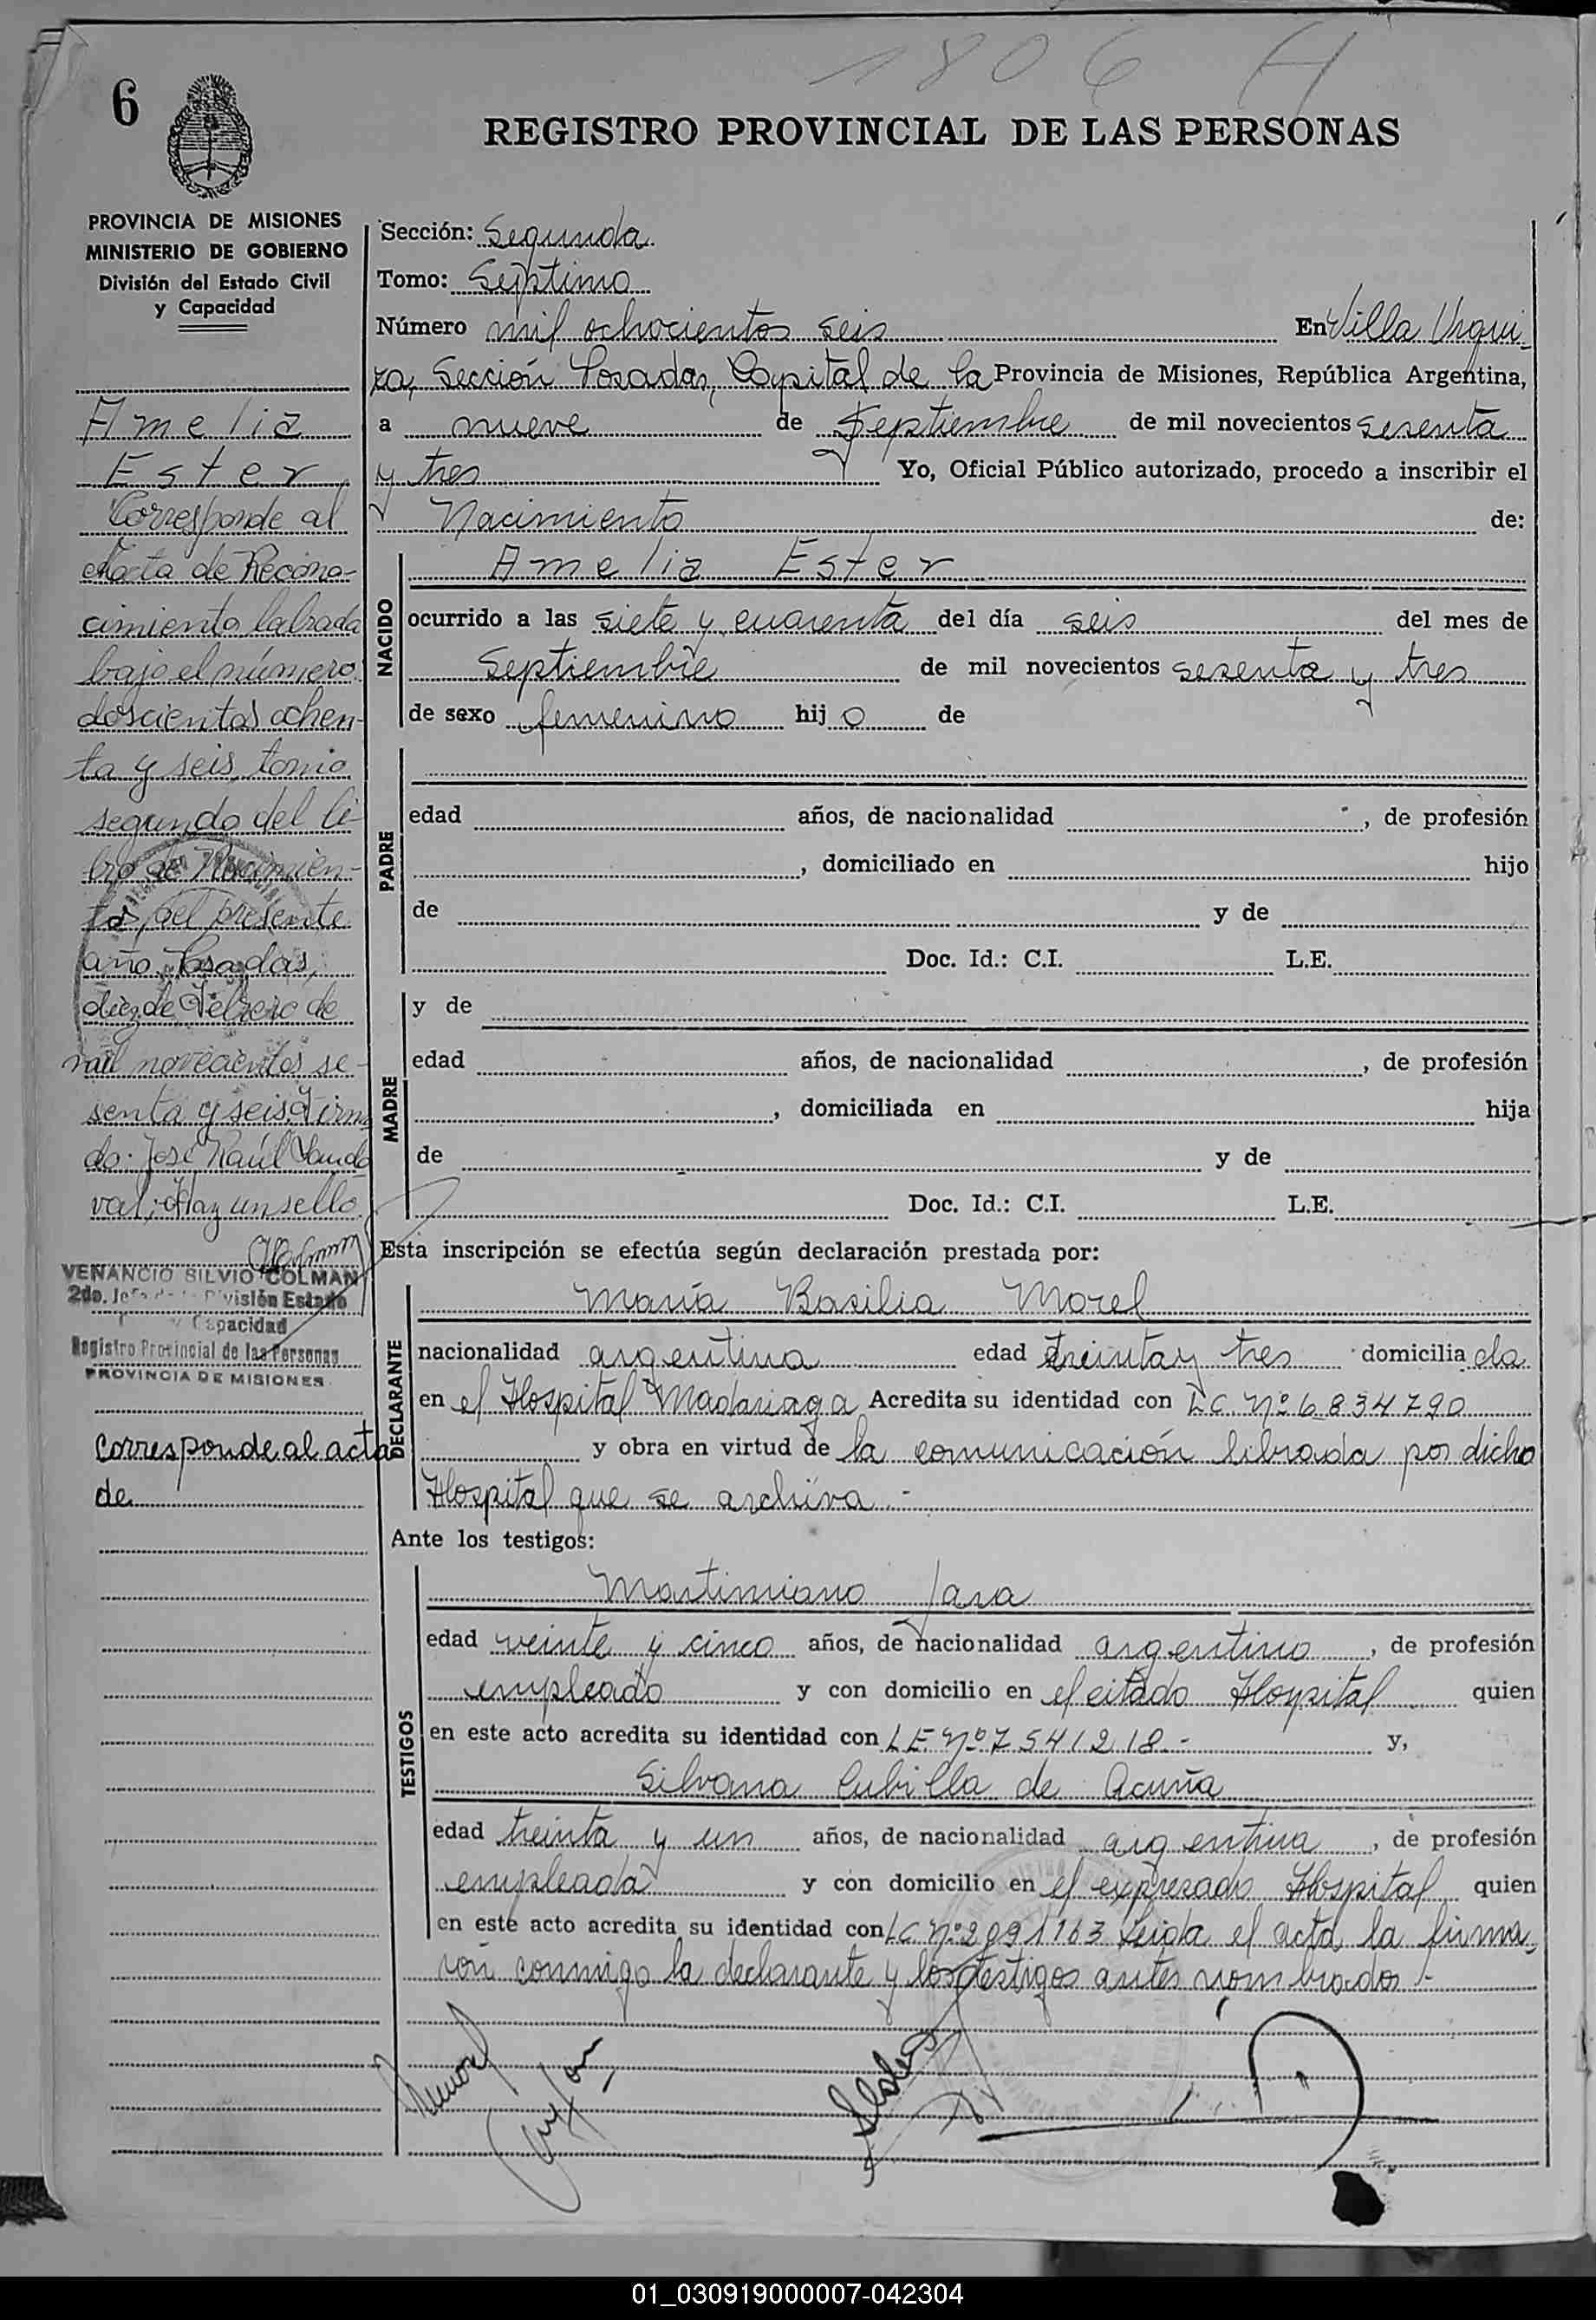 1806 A
6
REGISTRO PROVINCIAL DE LAS PERSONAS
PROVINCIA DE MISIONES
MINISTERIO DE GOBIERNO
División del Estado Civil
y Capacidad
Amelia
Ester
Corresponde al
Acta de Recono-
cimiento labrada
bajo el número
doscientos ochen-
ta y seis, tomo
segundo del li-
bro de Nacimien-
tos, del presente
año. Posadas,
diez de Febrero de
mil novecientos se-
senta y seis. Firma-
do: José Raúl Sando
val; Hay un sello.
VENANCIO SILVIO COLMAN
2do. Jefe de la División Estado
y Capacidad
Registro Provincial de las Personas
PROVINCIA DE MISIONES
Corresponde al acta
de
Sección: Segunda
Tomo: Septimo
Número mil ochocientos seis En Villa Urqui-
za, Sección Posadas, Capital de la Provincia de Misiones, República Argentina,
a nueve de Septiembre de mil novecientos sesenta
y tres Yo, Oficial Público autorizado, procedo a inscribir el
Nacimiento de:
NACIDO
Amelia Ester
ocurrido a las siete y cuarenta del día seis del mes de
Septiembre de mil novecientos sesenta y tres
de sexo femenino hijo de
PADRE
edad años, de nacionalidad , de profesión
, domiciliado en hijo
de y de
Doc. Id.: C.I. L.E.
MADRE
y de
edad años, de nacionalidad , de profesión
, domiciliada en hija
de y de
Doc. Id.: C.I. L.E.
Esta inscripción se efectúa según declaración prestada por:
DECLARANTE
María Basilia Morel
nacionalidad argentina edad treinta y tres domiciliada
en el Hospital Madariaga Acredita su identidad con L.C. Nº 6.834.790
y obra en virtud de la comunicación librada por dicho
Hospital que se archiva.-
Ante los testigos:
TESTIGOS
Martimiano Jara
edad veinte y cinco años, de nacionalidad argentino, de profesión
empleado y con domicilio en el citado Hospital quien
en este acto acredita su identidad con L.E. Nº 7541218.- y,
Silvana Cubilla de Acuña
edad treinta y un años, de nacionalidad argentina, de profesión
empleada y con domicilio en el expresado Hospital quien
en este acto acredita su identidad con L.C. Nº 2991163 Leida el acta, la firma-
ron conmigo la declarante y los testigos antes nombrados.-
01_030919000007-042304